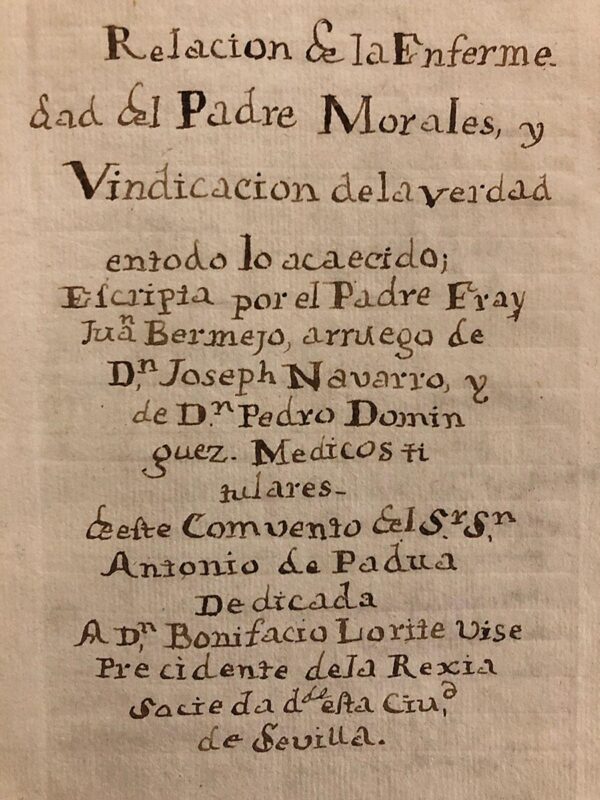 Relacion de la Enferme-
dad del Padre Morales, y
Vindicacion de la verdad
entodo lo acaecido;
Escripta por el Padre Fray
Juan Bermejo, arruego de
D.n Joseph Navarro, y
de D.n Pedro Domin
guez. Medicos ti
tulares-
de este Comvento del S.r S.n
Antonio de Padua
Dedicada
A D.n Bonifacio Lorite Vise
Precidente dela Rexia
Sacieda d de esta Ciu.d
de Sevilla.